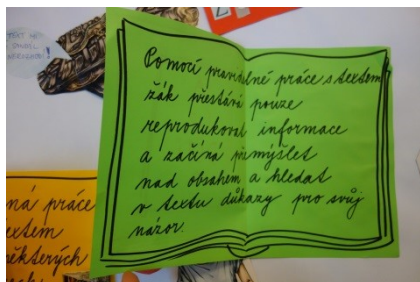 Pomocí pravidelné práce s textem
žák přestává pouze
reprodukovat informace
a začíná přemýšlet
nad obsahem a hledat
v textu důkazy pro svůj
názor.
ná práce
extem
některých